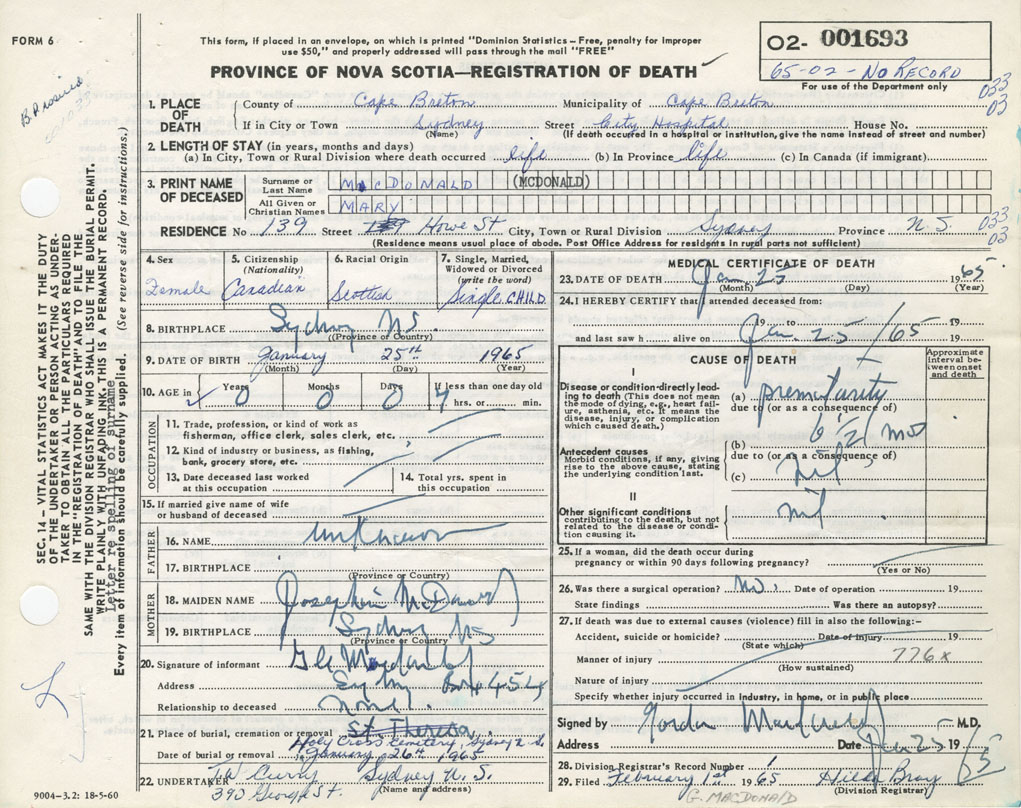 FORM 6
This form, if placed in an envelope, on which is printed "Dominion Statistics – Free, penalty for improper
use $50," and properly addressed will pass through the mail "FREE"
PROVINCE OF NOVA SCOTIA—REGISTRATION OF DEATH
02- 001693
65-02 - NO RECORD
For use of the Department only
033
03
1. PLACE OF DEATH
County of Cape Breton Municipality of Cape Breton
If in City or Town Sydney Street City Hospital House No.
(Name) (If death occured in a hospital or institution, give the name instead of street and number)
2. LENGTH OF STAY (in years, months and days)
(a) In City, Town or Rural Division where death occurred life (b) In Province life (c) In Canada (if immigrant)
3. PRINT NAME OF DECEASED
Surname or Last Name MacDONALD (MCDONALD)
All Given or Christian Names MARY
RESIDENCE No 139 Street 139 Howe St City, Town or Rural Division Sydney Province N.S.
033
03
(Residence means usual place of abode. Post Office Address for residents in rural parts not sufficient)
4. Sex
Female
5. Citizenship (Nationality)
Canadian
6. Racial Origin
Scottish
7. Single, Married, Widowed or Divorced (write the word)
Single CHILD
8. BIRTHPLACE Sydney NS.
(Province or Country)
9. DATE OF BIRTH January 25th 1965
(Month) (Day) (Year)
10. AGE in Years Months Days If less than one day old
0 0 0 4 hrs. or min.
OCCUPATION
11. Trade, profession, or kind of work as
fisherman, office clerk, sales clerk, etc.
12. Kind of industry or business, as fishing,
bank, grocery store, etc.
13. Date deceased last worked at this occupation
14. Total yrs. spent in this occupation
15. If married give name of wife
or husband of deceased
FATHER
16. NAME unknown
17. BIRTHPLACE
(Province or Country)
MOTHER
18. MAIDEN NAME Josephine McDonald
19. BIRTHPLACE Sydney NS
(Province or Country)
20. Signature of informant
Address Sydney Box 454
Relationship to deceased none.
21. Place of burial, cremation or removal St. Theresa
Holy Cross Cemetery, Sydney N.S.
Date of burial or removal January 26th 1965
22. UNDERTAKER TW Curry Sydney N.S.
(Name and address)
390 George St.
9004-3.2: 18-5-60
MEDICAL CERTIFICATE OF DEATH
23. DATE OF DEATH Jan 25 1965
(Month) (Day) (Year)
24. I HEREBY CERTIFY that I attended deceased from:
19 to 19
and last saw h alive on Jan. 25/65 19
CAUSE OF DEATH
Approximate interval between onset and death
I
Disease or condition directly leading to death (This does not mean the mode of dying, e.g., heart failure, asthenia, etc. It means the disease, injury, or complication which caused death.)
(a) prematurity
due to (or as a consequence of)
(b) 6 1/2 mos
Antecedent causes
Morbid conditions, if any, giving rise to the above cause, stating the underlying condition last.
due to (or as a consequence of)
(c) nil
II
Other significant conditions
contributing to the death, but not related to the disease or condition causing it.
nil
25. If a woman, did the death occur during
pregnancy or within 90 days following pregnancy?
(Yes or No)
26. Was there a surgical operation? No. Date of operation 19
State findings Was there an autopsy?
27. If death was due to external causes (violence) fill in also the following:–
Accident, suicide or homicide? Date of injury 19
(State which)
Manner of injury 776x
(How sustained)
Nature of injury
Specify whether injury occurred in industry, in home, or in public place
Signed by Gordon M.D.
Address Date Jan 25 1965
28. Division Registrar's Record Number 1
29. Filed February 1st 1965 Hilda Bray
(Division Registrar)
G. MACDONALD
SEC. 14 – VITAL STATISTICS ACT MAKES IT THE DUTY
OF THE UNDERTAKER OR PERSON ACTING AS UNDER-
TAKER TO OBTAIN ALL THE PARTICULARS REQUIRED
IN THE "REGISTRATION OF DEATH" AND TO FILE THE
SAME WITH THE DIVISION REGISTRAR WHO SHALL ISSUE THE BURIAL PERMIT.
WRITE PLAINLY WITH UNFADING INK, THIS IS A PERMANENT RECORD.
Letter re spelling of Surname
Every item of information should be carefully supplied. (See reverse side for instructions.)